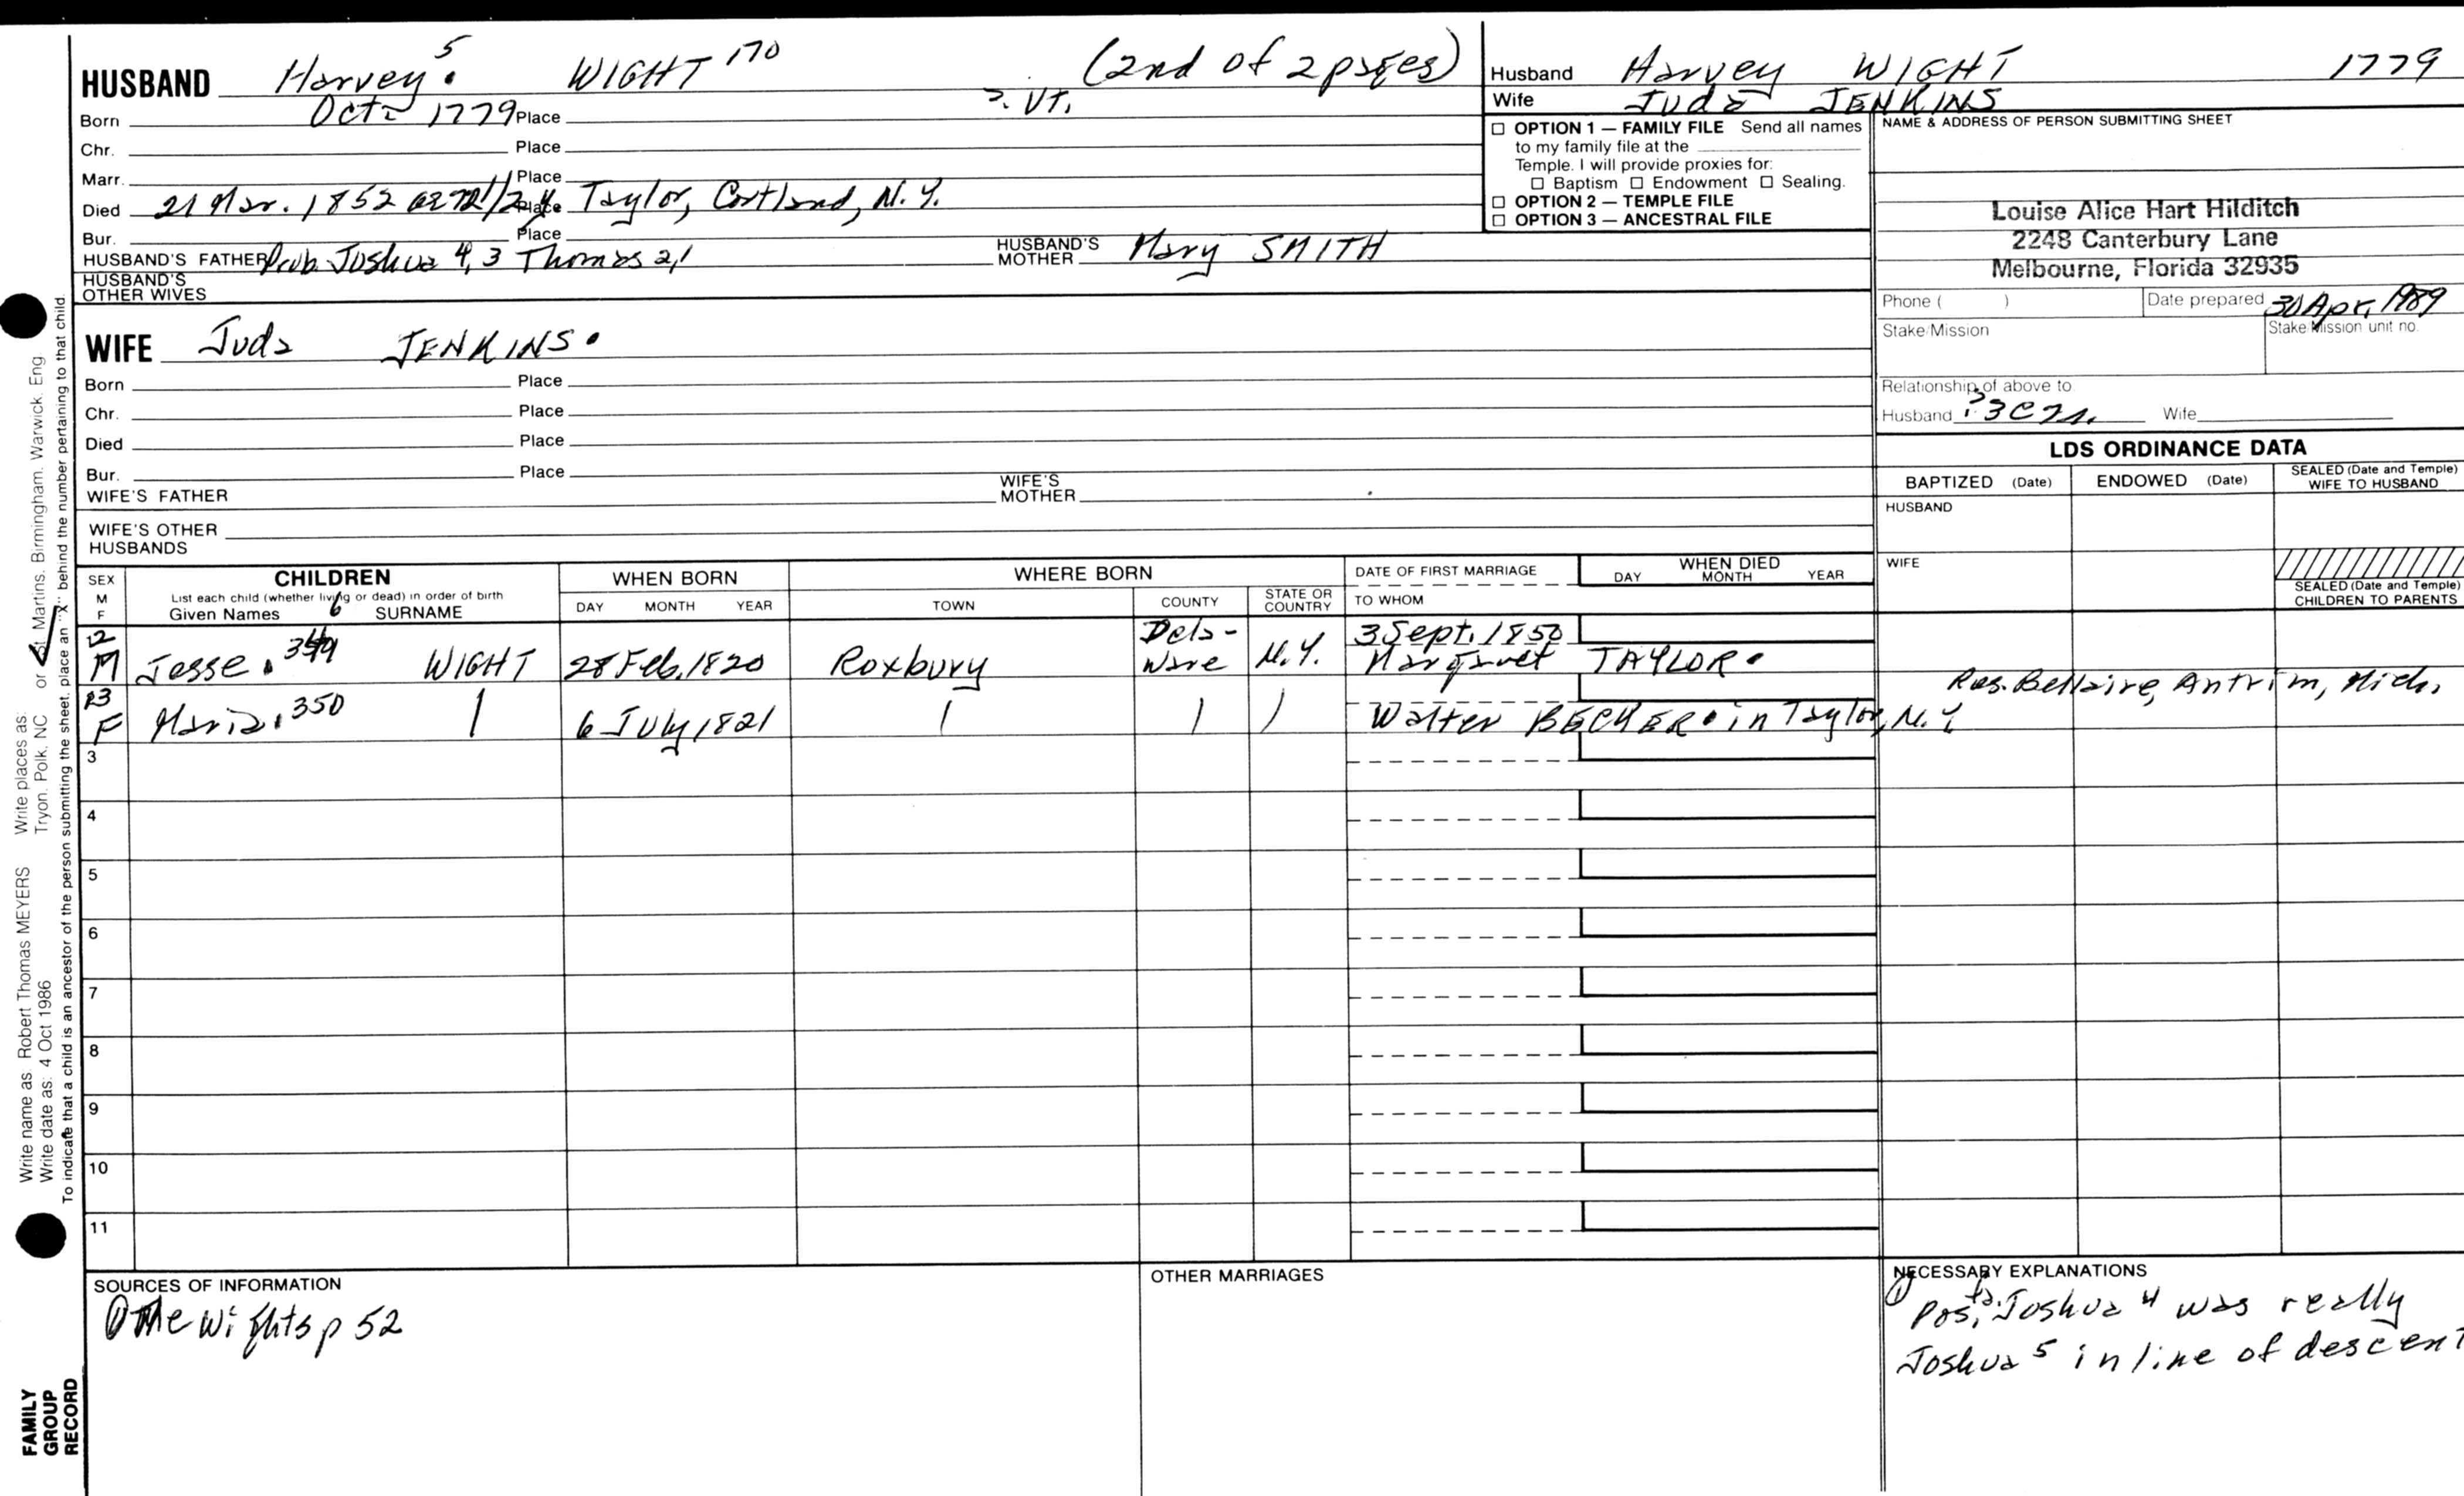 HUSBAND Harvey 5. WIGHT 170 (2nd of 2 pages)
Born Oct 1779 Place ?. Vt.
Chr. Place
Marr. Place
Died 21 Mar. 1852 ae 72 1/2 y. Place Taylor, Cortland, N.Y.
Bur. Place
HUSBAND'S FATHER Prob. Joshua 4, 3 Thomas 2, 1 HUSBAND'S MOTHER Mary SMITH
HUSBAND'S OTHER WIVES
WIFE Juda JENKINS.
Born Place
Chr. Place
Died Place
Bur. Place
WIFE'S FATHER WIFE'S MOTHER
WIFE'S OTHER HUSBANDS
Husband Harvey WIGHT 1779
Wife Juda JENKINS
☐ OPTION 1 — FAMILY FILE Send all names
to my family file at the
Temple. I will provide proxies for:
☐ Baptism ☐ Endowment ☐ Sealing.
☐ OPTION 2 — TEMPLE FILE
☐ OPTION 3 — ANCESTRAL FILE
NAME & ADDRESS OF PERSON SUBMITTING SHEET
Louise Alice Hart Hilditch
2248 Canterbury Lane
Melbourne, Florida 32935
Phone ( ) Date prepared 30 Apr, 1989
Stake/Mission Stake/Mission unit no.
Relationship of above to
Husband Wife
LDS ORDINANCE DATA
BAPTIZED (Date) ENDOWED (Date) SEALED (Date and Temple) WIFE TO HUSBAND
HUSBAND
WIFE
SEALED (Date and Temple) CHILDREN TO PARENTS
SEX M F CHILDREN WHEN BORN WHERE BORN DATE OF FIRST MARRIAGE WHEN DIED
List each child (whether living or dead) in order of birth
Given Names 6 SURNAME DAY MONTH YEAR TOWN COUNTY STATE OR COUNTRY TO WHOM DAY MONTH YEAR
12 M Jesse. 349 WIGHT 28 Feb. 1820 Roxbury Dela-ware N.Y. 3 Sept. 1850 Margaret TAYLOR.
Res. Bellaire, Antrim, Mich.
13 F Maria. 350 6 July 1821 Walter BECKER. in Taylor, N.Y.
3
4
5
6
7
8
9
10
11
SOURCES OF INFORMATION
① The Wights p 52
OTHER MARRIAGES
NECESSARY EXPLANATIONS
① Pos. Joshua 4 was really
Joshua 5 in line of descent
Write name as Robert Thomas MEYERS Write places as:
Write date as: 4 Oct 1986 Tryon, Polk, NC or St Martins, Birmingham, Warwick, Eng
To indicate that a child is an ancestor of the person submitting the sheet, place an "X" behind the number pertaining to that child.
FAMILY
GROUP
RECORD